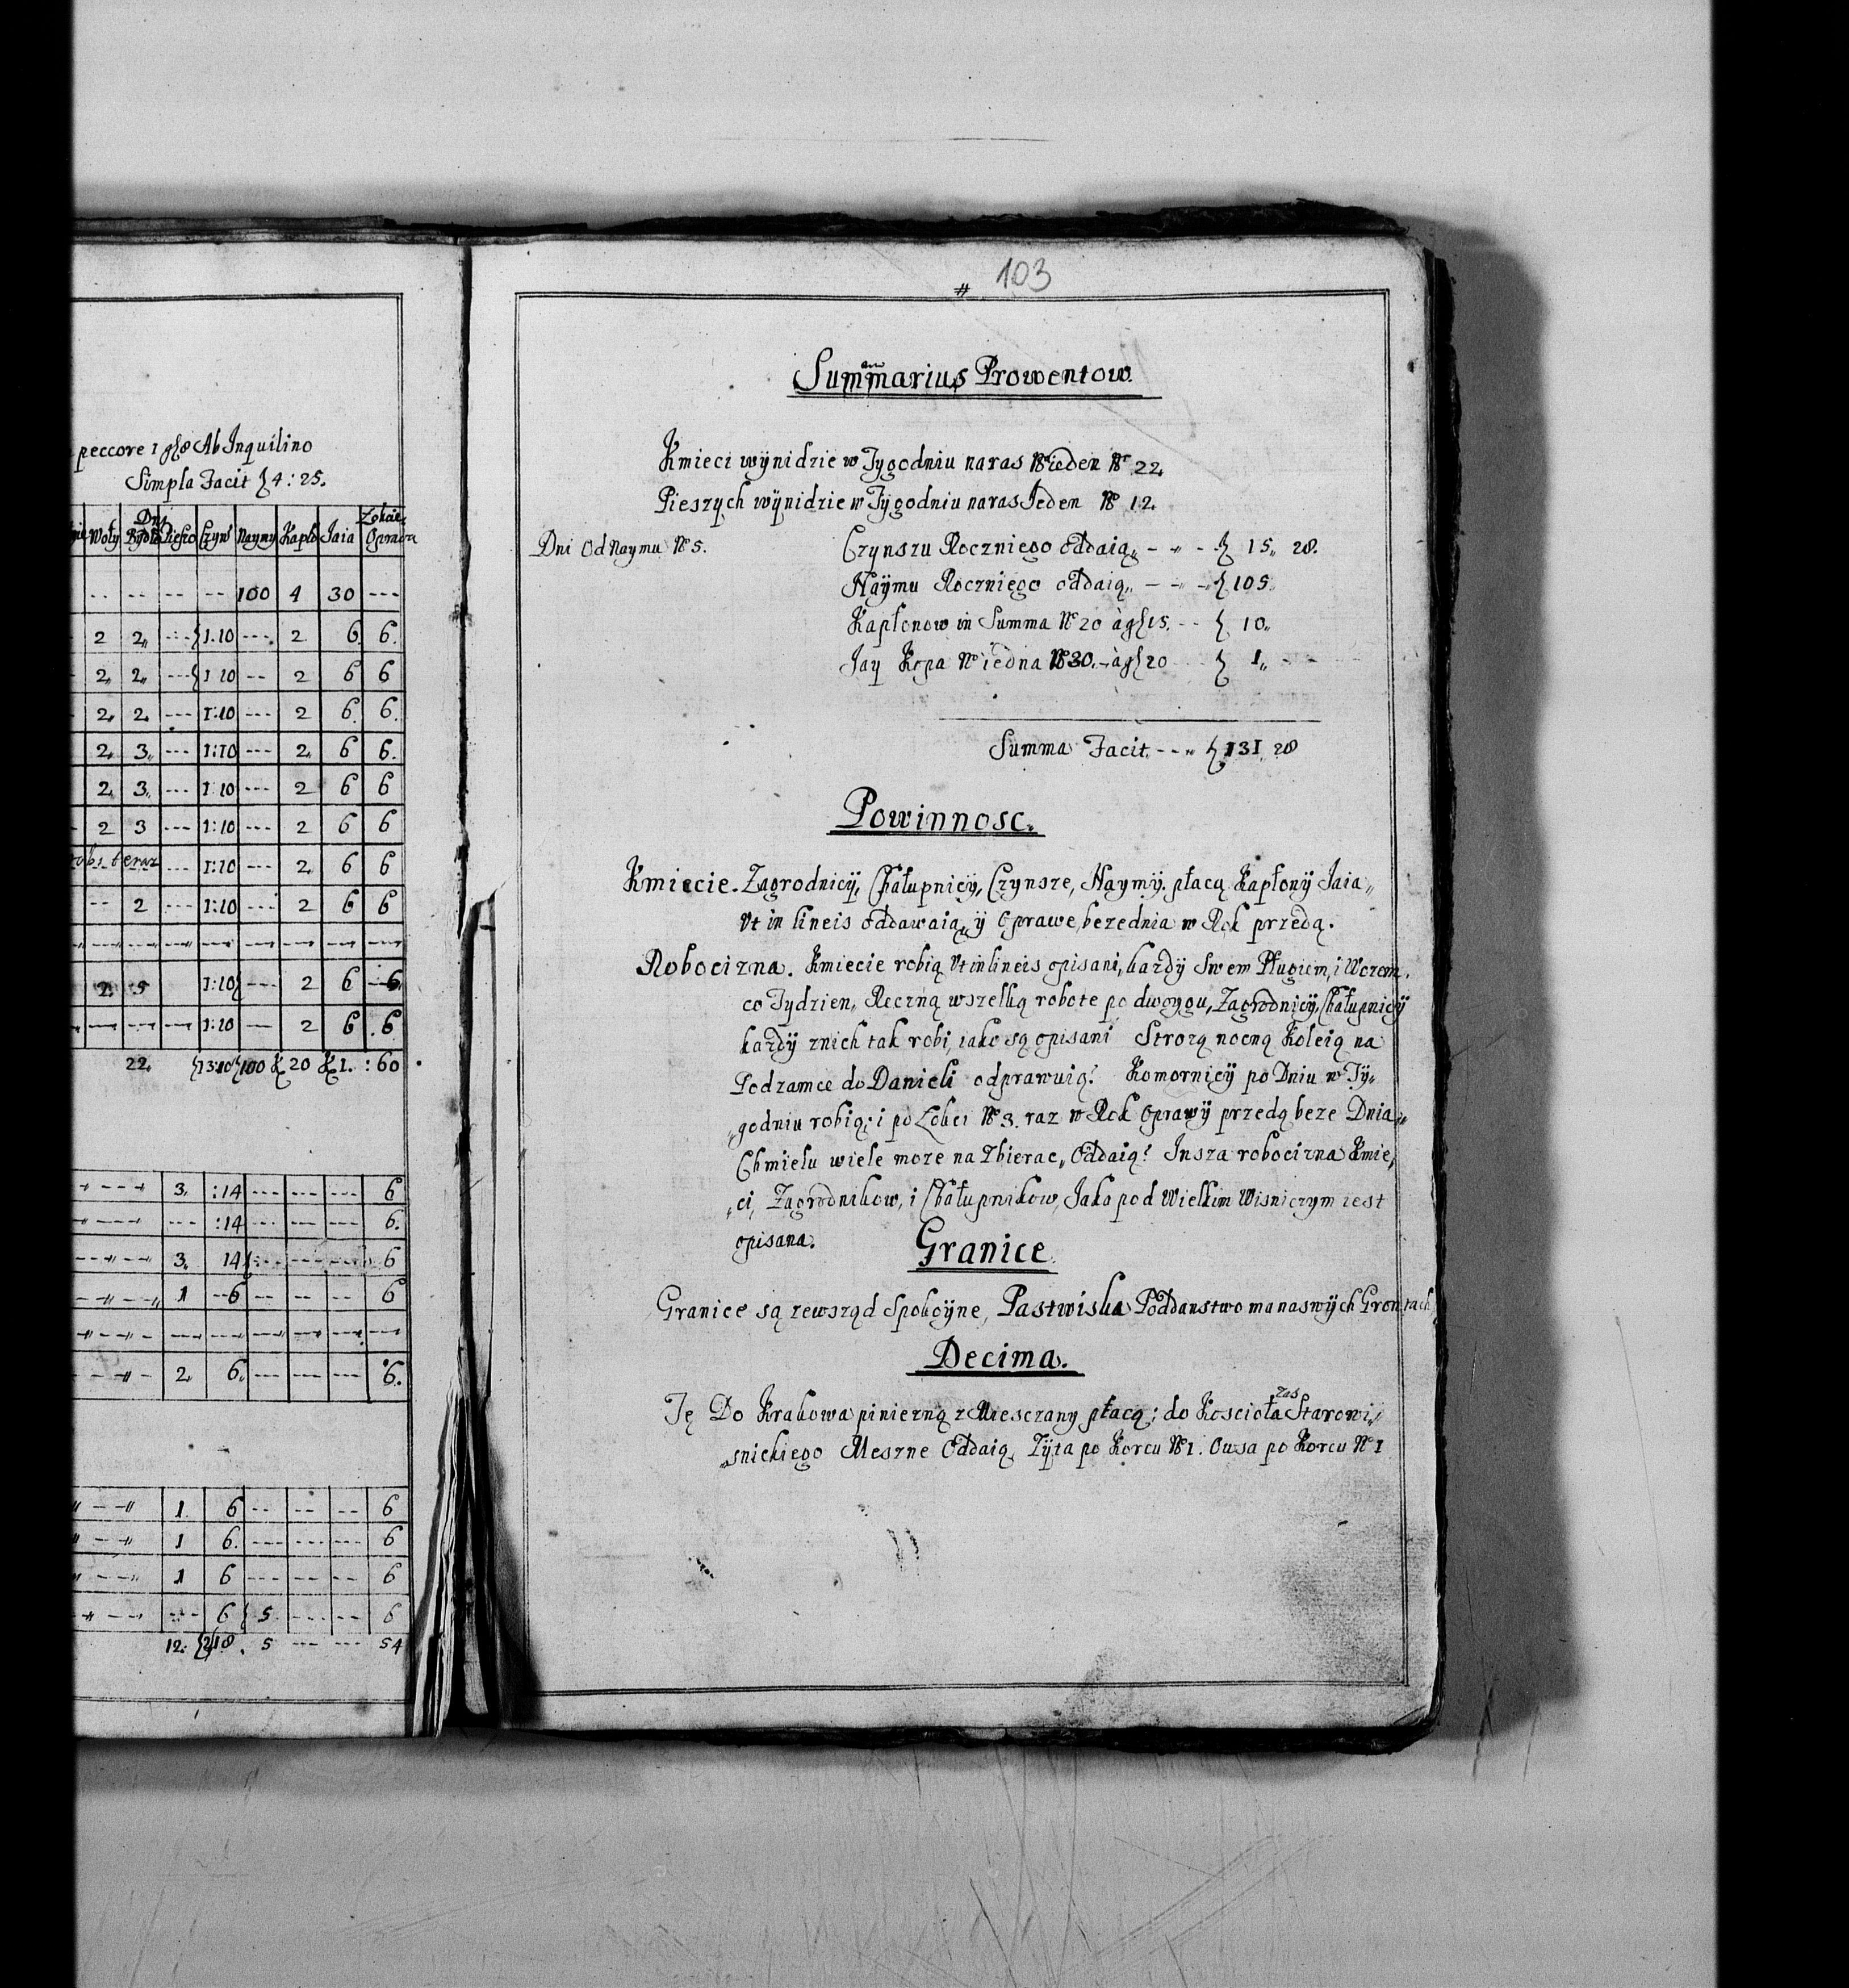 peccore 1 gl8 Ab Inquilino
Simpla Facit ʒ 4 : 25.
Woły Dny Bydłē Pieszo Czyns Naymy Kapło Jaia Łokcie Oprawa
-- -- -- -- 100 4 30 ---
2 2 --- 1.10 --- 2 6 6.
2 2 --- 1 10 -- 2 6 6
2 2. --- 1:10 --- 2 6. 6.
2 3. --- 1:10 --- 2 6 6.
2 3. --- 1:10 --- 2 6 6
2 3 --- 1:10 --- 2 6 6
--- 1:10 --- 2 6 6
-- 2 --- 1:10 --- 2 6 6
2. 5 1:10 --- 2 6 6
--- 1:10 — 2 6 6
22. 13:10 100 20 1. : 60
3. :14 --- --- --- 6
--- :14 --- --- --- 6.
3. 14 --- --- --- 6
1 --6 -- -- -- 6
2. 6. --- --- --- 6.
1 6 -- -- -- 6
1 6. --- --- --- 6
1 6 --- --- -- 6
--- 6 5 --- -- 6
12: 2 18. 5 --- --- 54
103
Summarius Prowentow.
Kmieci wÿnidzie w Tygodniu na ras Nº ieden Nº 22
Pieszych wÿnidzie w Tÿgodniu na ras Jeden Nº 12.
Dni Od Naymu Nº 5.
Czynszu Roczniego oddaią - - - ʒ 15,, 28.
Naÿmu Roczniego oddaią,, - - - ʒ 105.
Kapłonow in Summa Nº 20 à gʃ 15. - - ʒ 10,,
Jay Kopa Nº iedna Nº 30. - à gʃ 20 ʒ 1,, - -
Summa Facit - - ,, ʒ 131 28
Powinnosc.
Kmiecie. Zagrodnicÿ, Chałupnicÿ, Czynsze, Naymÿ. płacą Kapłonÿ Jaia,,
Vt in lineis oddawaią, ÿ Oprawe beze dnia w Rok przedą.
Robocizna. Kmiecie robią Vt in lineis opisani, każdÿ Swem Pługiem, i Wozem,
co Tydzien, Reczną wszelką robote po dwoygu, Zagrodnicÿ, Chałupnicÿ
każdÿ znich tak robi, iako są opisani Strożą nocną Koleią na
Podzamce do Danieli odprawuią. Komornicÿ po Dniu w Tÿ,,
,,godniu robią, i po Łokci Nº 3. raz w Rok Oprawÿ przedą beze Dnia,,
Chmielu wiele może na Zbierac, Oddaią. Insza robocizna Kmie,,
,,ci, Zagrodnikow, i Chałupnikow, Jako pod Wielkim Wisniczym iest
opisana.
Granice
Granice są zewsząd Spokoÿne, Pastwiska Poddanstwo ma na swÿch Grontach
Decima.
Tę Do Krakowa pinięzną z Miesczany płacą; do Koscioła zas Starowi,,
,,snickiego Meszne Oddaią, Zÿta po Korcu Nº 1. Owsa po Korcu Nº 1